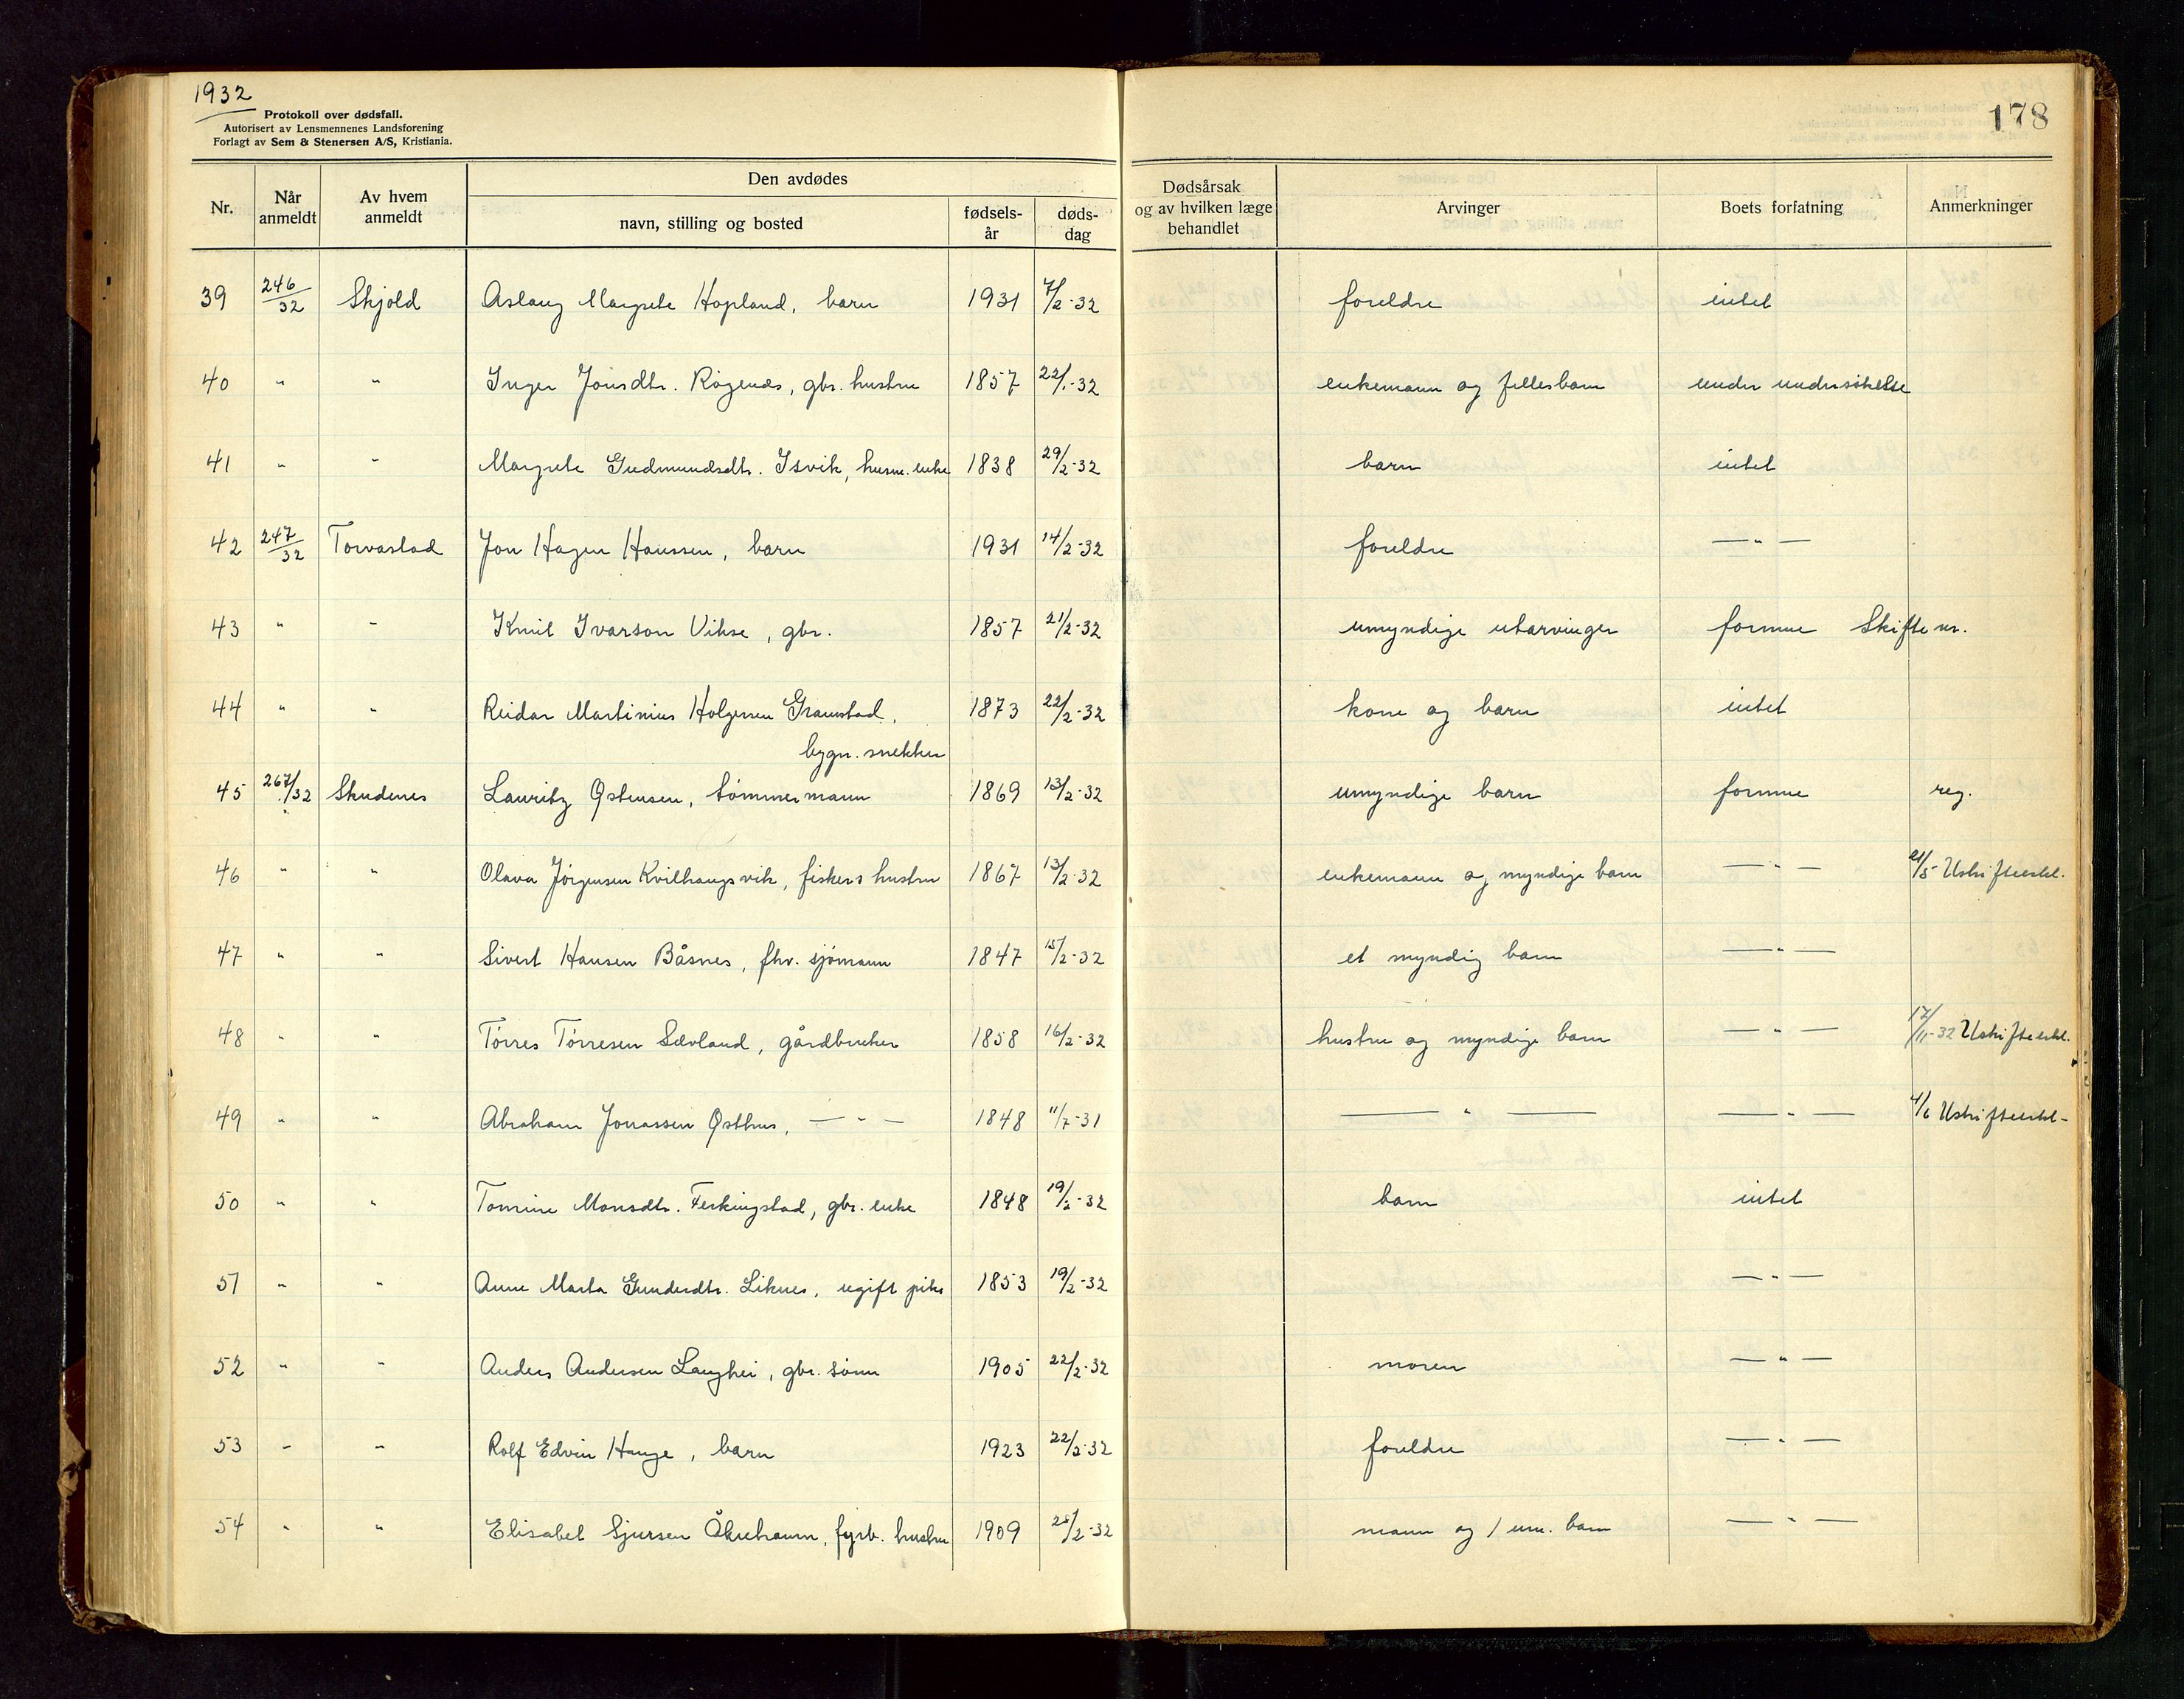 1932
Protokoll over dødsfall.
Autorisert av Lensmennenes Landsforening
Forlagt av Sem & Stenersen A/S, Kristiania.
178
Nr. Når anmeldt Av hvem anmeldt Den avdødes navn, stilling og bosted fødsels-år døds-dag Dødsårsak og av hvilken læge behandlet Arvinger Boets forfatning Anmerkninger
39 246/32 Skjold Aslaug Margrete Hopland, barn 1931 7/2-32 foreldre intet
40 " " Inger Jonsdtr. Røgenes, gbr. hustru 1857 22/1-32 enkemann og fellesbarn under undersøkelse
41 " " Margrete Gudmundsdtr. Isvik, husm. enke 1838 29/2-32 barn intet
42 247/32 Torvastad Jon Hagen Hanssen, barn 1931 14/2-32 foreldre — " —
43 " " Knut Ivarson Vikse, gbr. 1857 21/2-32 umyndige utarvinger formue Skifte nr.
44 " " Reidar Martinius Holgersen Granstad, 1873 22/2-32 kone og barn intet
bygn. snekker
45 267/32 Skudenes Lauritz Østensen, tømmermann 1869 13/2-32 umyndige barn formue reg.
46 " " Olava Jørgensen Kvilhaugsvik, fiskers hustru 1867 13/2-32 enkemann og myndige barn — " — 21/5 Uskifteerkl.
47 " " Sivert Hansen Båsnes, fhv. sjømann 1847 15/2-32 et myndig barn — " —
48 " " Tørres Tørresen Sævland, gårdbruker 1858 16/2-32 hustru og myndige barn — " — 17/11-32 Uskifteerkl.
49 " " Abraham Jonassen Østhus, — " — 1848 11/7-31 — " — — " — 4/6 Uskifteerkl-
50 " " Tomine Monsdtr. Ferkingstad, gbr. enke 1848 19/2-32 barn intet
51 " " Anne Marta Gundersdtr. Liknes, ugift pike 1853 19/2-32 — " —
52 " " Anders Andersen Langhei, gbr. sønn 1905 22/2-32 moren — " —
53 " " Rolf Edvin Hauge, barn 1923 22/2-32 foreldre — " —
54 " " Elisabet Sjursen Åkrehamn, fyrb. hustru 1909 25/2-32 mann og 1 um. barn — " —